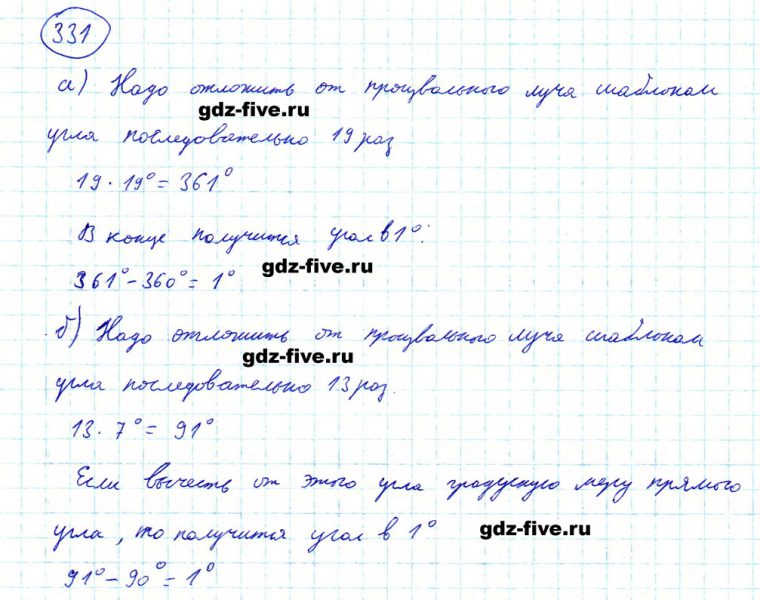 331
а) Надо отложить от произвольного луча шаблоном
gdz-five.ru
угла последовательно 19 раз
19 · 19° = 361°
В конце получится угол в 1°:
gdz-five.ru
361° - 360° = 1°
б) Надо отложить от произвольного луча шаблоном
gdz-five.ru
угла последовательно 13 раз.
13 · 7° = 91°
Если вычесть от этого угла градусную меру прямого
угла, то получится угол в 1°
gdz-five.ru
91° - 90° = 1°